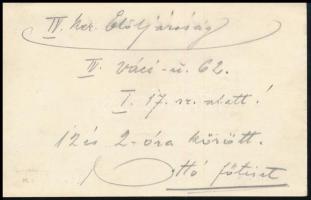 IV. ker. Elöljáróság
IV. váci-u. 62.
I. 17. sz. alatt!
12 és 2-óra között.
Ottó főtiszt